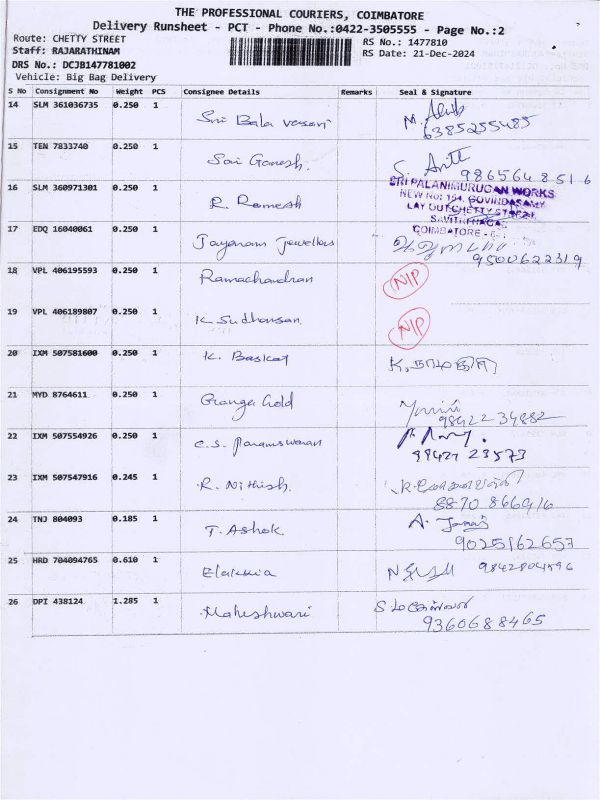 THE PROFESSIONAL COURIERS, COIMBATORE
Delivery Runsheet - PCT - Phone No.:0422-3505555 - Page No.:2
Route: CHETTY STREET
RS No.: 1477810
Staff: RAJARATHINAM
RS Date: 21-Dec-2024
DRS No.: DCJB147781002
Vehicle: Big Bag Delivery
S No Consignment No Weight PCS Consignee Details Remarks Seal & Signature
14 SLM 361036735 0.250 1 Sri Bala M.
6385255485
15 TEN 7833740 0.250 1 Sai Ganesh. S.
9865648516
16 SLM 360971301 0.250 1 R. Ramesh
SRI PALANIMURUGAN WORKS
NEW No: 194, GOVINDASAMY
LAY OUT, CHETTY STREET
COIMBATORE
17 EDQ 16040061 0.250 1 Jayaram Jewellers
9500622319
18 VPL 406195593 0.250 1 Ramachandran N/P
19 VPL 406189807 0.250 1 K. Sudharsan N/P
20 IXM 507581600 0.250 1 K. Baskar K.
21 MYD 8764611 0.250 1 Ganga Gold
98422 34882
22 IXM 507554926 0.250 1 C.S. Parameswaran
98421 23573
23 IXM 507547916 0.245 1 R. Nithish.
8870 866916
24 TNJ 804093 0.185 1 T. Ashok A.
9025162657
25 HRD 704094765 0.610 1 Elakkia
26 DPI 438124 1.285 1 Maheshwari S மகேஸ்வரி
9360688465